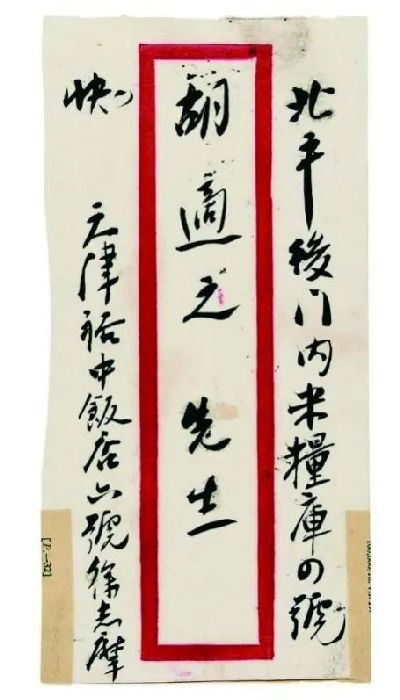 北平後门内米糧庫四號
胡適之 先生
快
天津裕中飯店六號徐志摩